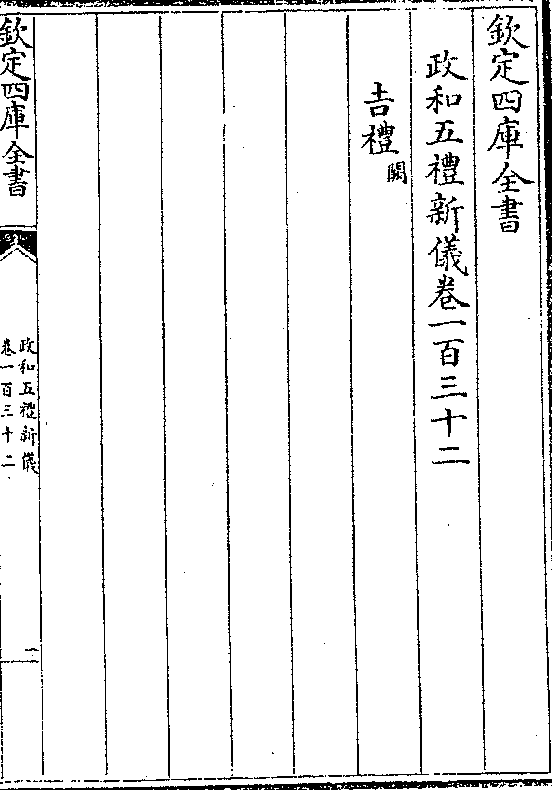 欽定四庫全書
政和五禮新儀卷一百三十二
吉禮闕
欽定四庫全書
政和五禮新儀
卷一百三十二
一